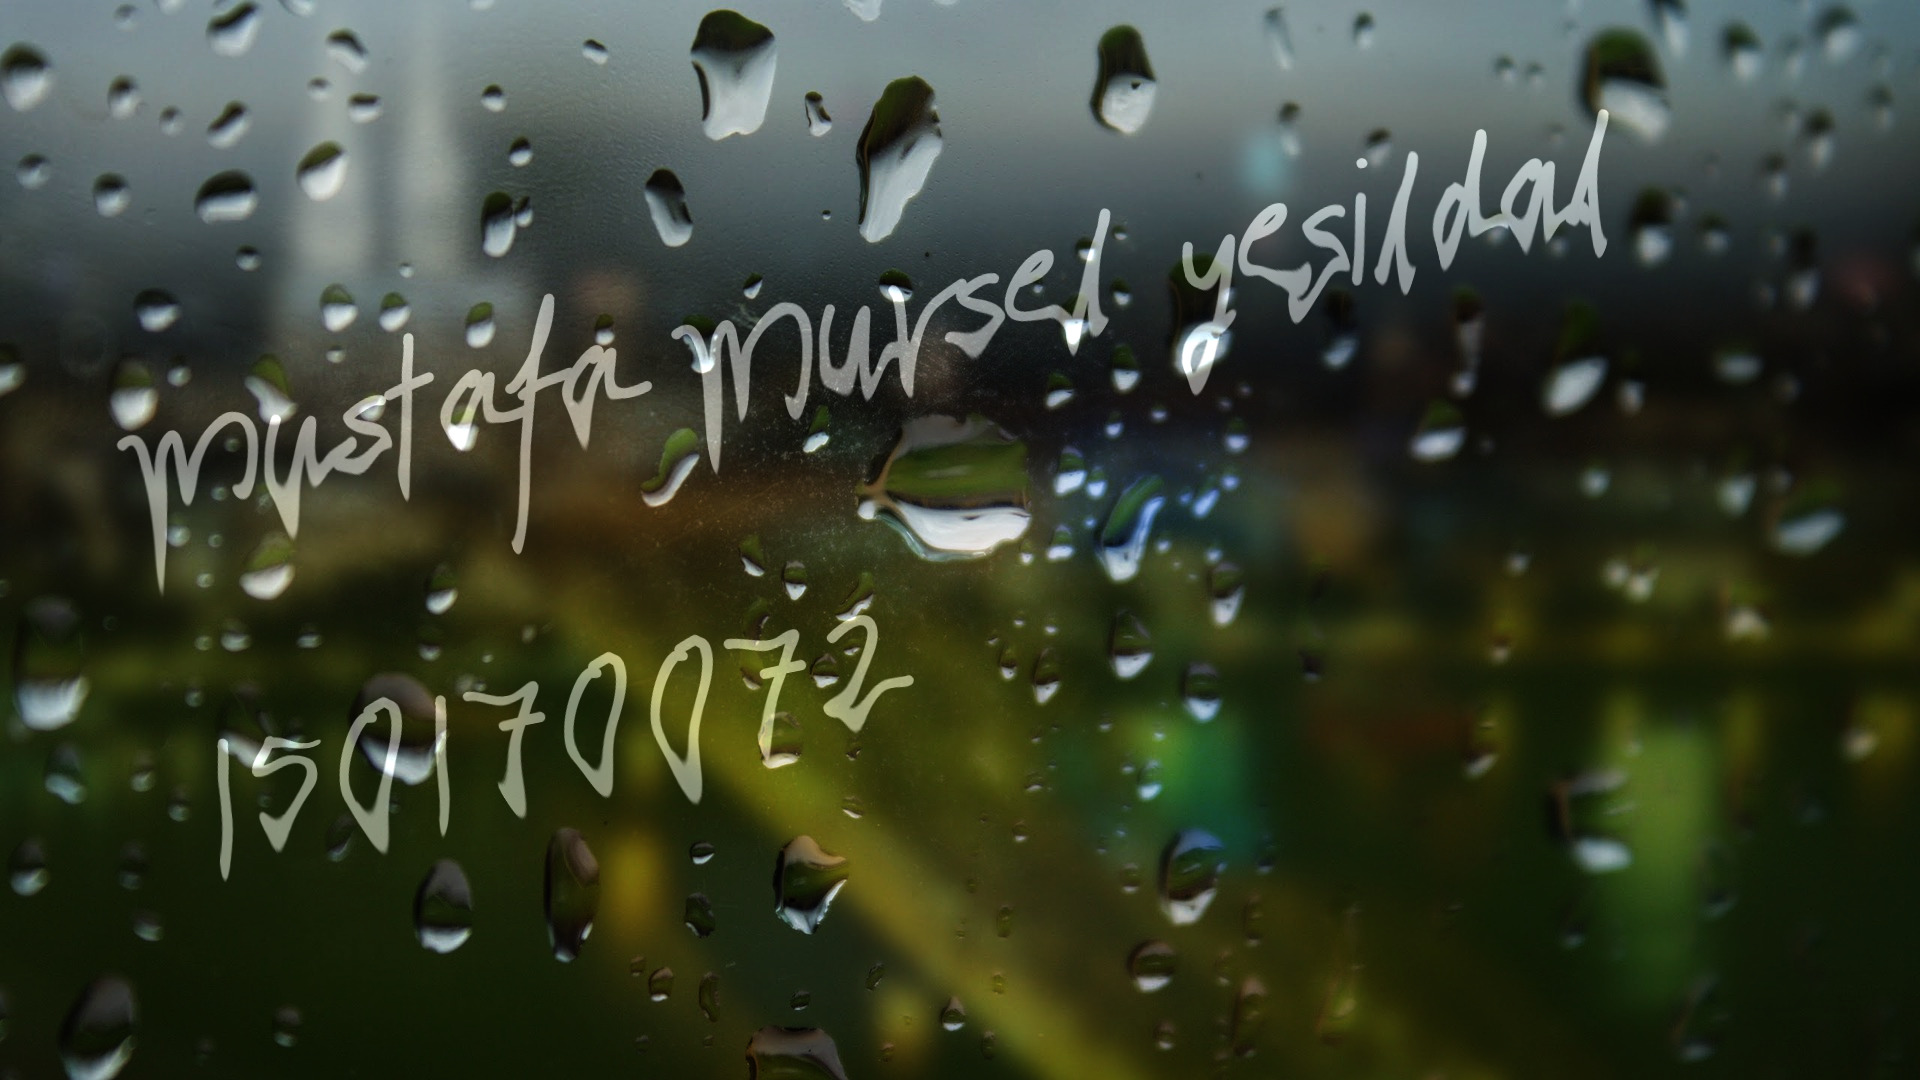 mustafa mursel yesildal
150170072